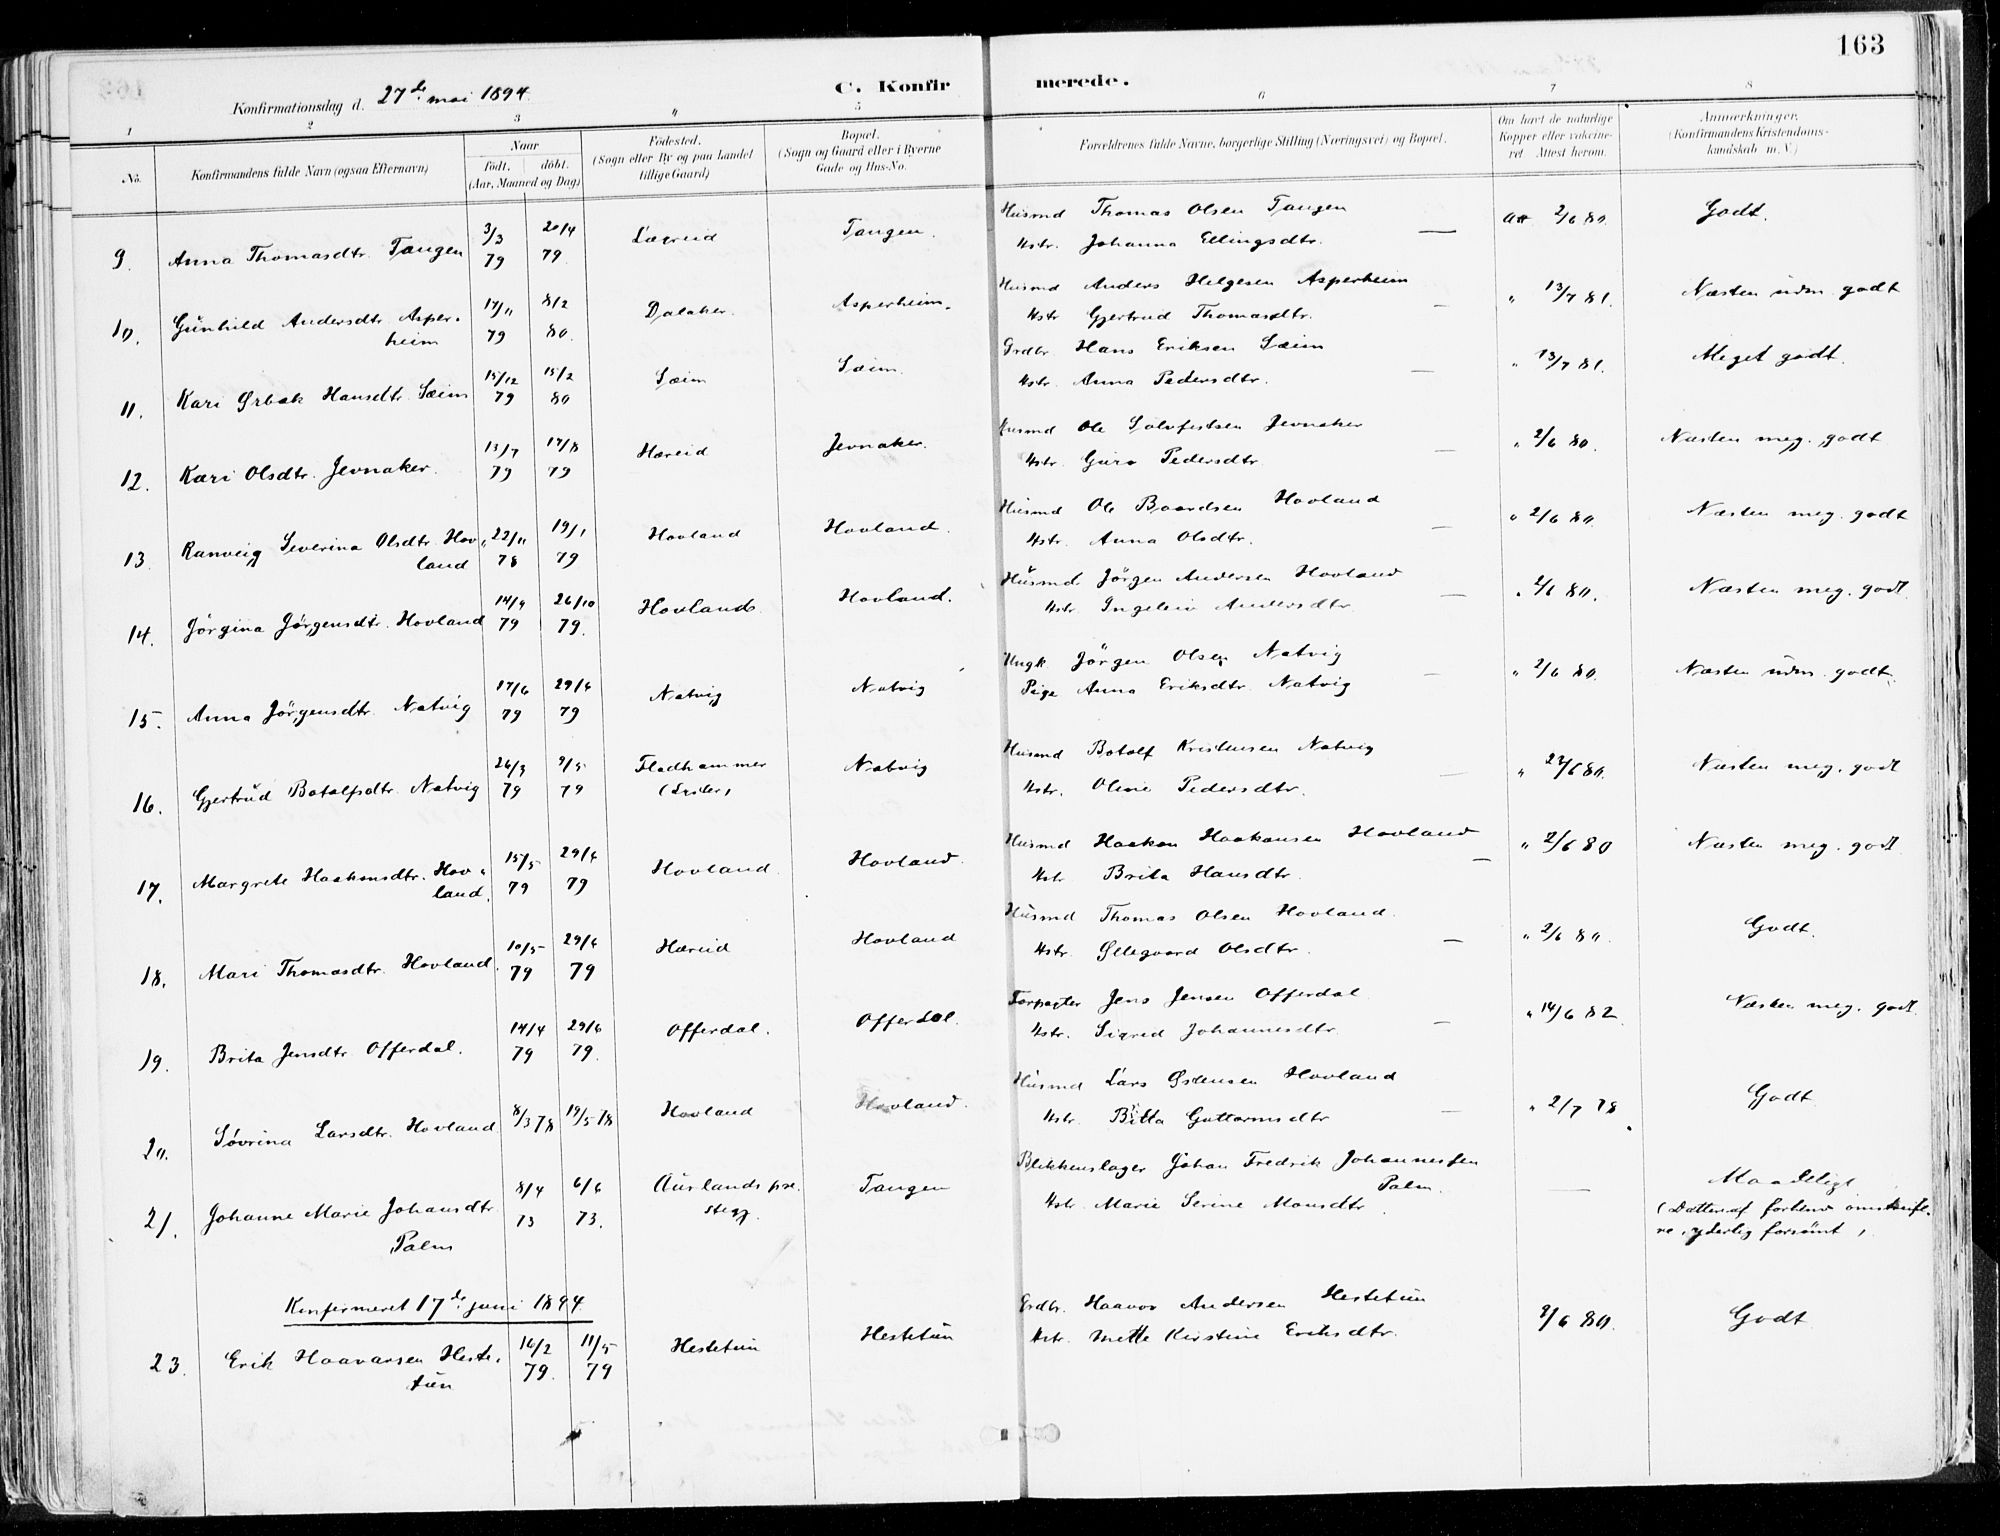 163
Konfirmationsdag d. 27de mai 1894.
C. Konfirmerede.
1 2 3 4 5 6 7 8
No. Konfirmandens fulde Navn (ogsaa Efternavn) Naar født. døbt. (Aar, Maaned og Dag) Födested. (Sogn eller By og paa Landet tillige Gaard) Bopæl. (Sogn og Gaard eller i Byerne Gade og Hus-No. Forældrenes fulde Navne, borgerlige Stilling (Næringsvei) og Bopæl. Om havt de naturlige Kopper eller vakcineret. Attest herom. Anmærkninger. (Konfirmandens Kristendomskundskab m. V.)
9. Anna Thomasdtr. Tangen 3/3 79 20/4 79 Lægreid Tangen. Husmd Thomas Olsen Tangen att 2/6 80. Godt.
Hstr. Johanna Ellingsdtr. —
10. Gunhild Andersdtr. Asper- 17/11 79 8/2 80. Dalaker. Asperheim. Husmd Anders Helgesen Asperheim " 13/7 81. Næsten udm. godt
heim Hstr Gjertrud Thomasdtr. —
11. Kari Ørbæk Hansdtr. Sæim 15/12 79 15/2 80 Sæim Sæim. Grdbr Hans Eriksen Sæim " 13/7 81. Meget godt.
Hstr. Anna Pedersdtr. —
12. Kari Olsdtr. Jevnaker. 13/7 79 17/8 79 Hæreid Jevnaker. Husmd Ole Solvfestsen Jevnaker " 2/6 80. Næsten meg. godt
Hstr. Guro Pedersdtr. —
13. Ranveig Severina Olsdtr. Hov- 22/11 78 19/1 79 Hovland Hovland. Husmd Ole Baardsen Hovland " 2/6 80. Næsten meg. godt
land Hstr. Anna Olsdtr. —
14. Jörgina Jörgensdtr. Hovland 14/9 79 26/10 79. Hovlands Hovland. Husmd. Jörgen Andersen Hovland " 2/6 80. Næsten meg. godt.
Hstr. Ingeleiv Andersdtr. —
15. Anna Jörgensdtr. Natvig 17/6 79 29/6 79 Natvig Natvig Ungk Jörgen Olsen Natvig " 2/6 80. Næsten udm. godt.
Pige Anna Eriksdtr. Natvig —
16. Gjertrud Botolfsdtr. Natvig 26/3 79 9/5 79 Fladhammer Natvig Husmd Botolf Kristensen Natvig " 22/6 80. Næsten meg. godt
Hstr. Oline Pedersdtr. —
17. Margrete Haakonsdtr. Hov- 15/5 79 29/6 79 Hovland. Hovland. Husmd Haakon Haakonsen Hovland " 2/6 80 Næsten meg. godt.
land. Hstr Brita Hansdtr. —
18. Mari Thomasdtr. Hovland. 10/5 79 29/6 79 Hæreid Hovland Husmd Thomas Olsen Hovland. " 2/6 80. Godt.
Hstr. Øllegaard Olsdtr. —
19. Brita Jensdtr. Offerdal. 14/4 79 29/6 79. Offerdal. Offerdal. Forpagter Jens Jensen Offerdal " 14/6 82 Næsten meg. godt.
Hstr. Sigrid Johannesdtr. —
20. Søvrina Larsdtr. Hovland 8/3 78 19/5 78 Hovland Hovland. Husmd Lars Østensen Hovland " 2/7 78 Godt.
Hstr. Britta Guttormsdtr —
21. Johanne Marie Johansdtr 8/4 73 6/6 73. Aurlands præ- Tangen Blikkenslager Johan Fredrik Johannessen — Maadeligt
Palm stegj. Palm.
Hstr. Marie Serine Monsdtr. (Datter af forhenv. omstreife-
re, yderlig forsömt)
Konfirmeret 17de juni 1894.
23. Erik Haavarsen Heste- 16/2 79. 11/5 79 Hestetun Hestetun Grdbr. Haavor Andersen Hestetun 2/6 80. Godt.
tun Hstr. Mette Kirstine Eriksdtr.